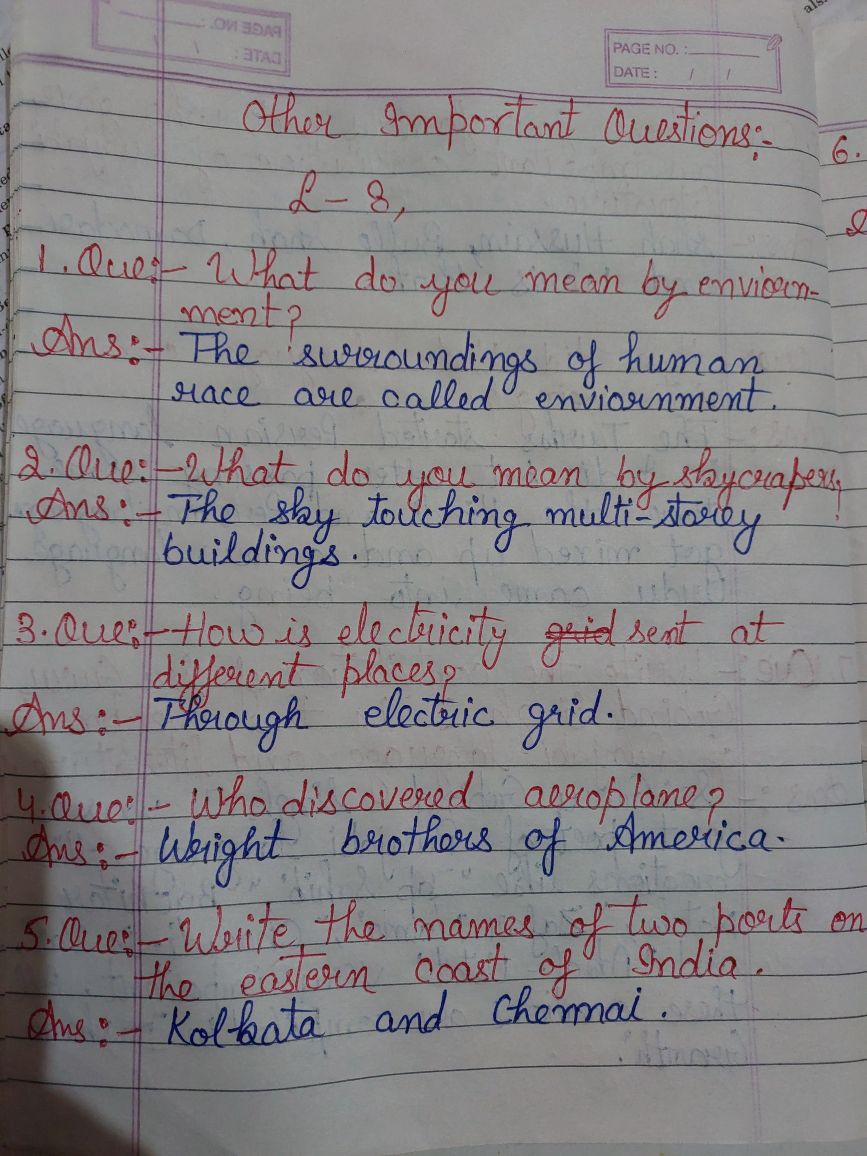 PAGE NO. :
DATE : / /
Other Important Questions:-
L-8,
1. Que:- What do you mean by enviorn-
ment?
Ans:- The surroundings of human
race are called enviornment.
2. Que:- What do you mean by skycrapers?
Ans:- The sky touching multi-storey
buildings.
3. Que:- How is electricity grid sent at
different places?
Ans:- Through electric grid.
4. Que:- Who discovered aeroplane?
Ans:- Wright brothers of America.
5. Que:- Write, the names of two ports on
the eastern coast of India.
Ans:- Kolkata and Chennai.
6.